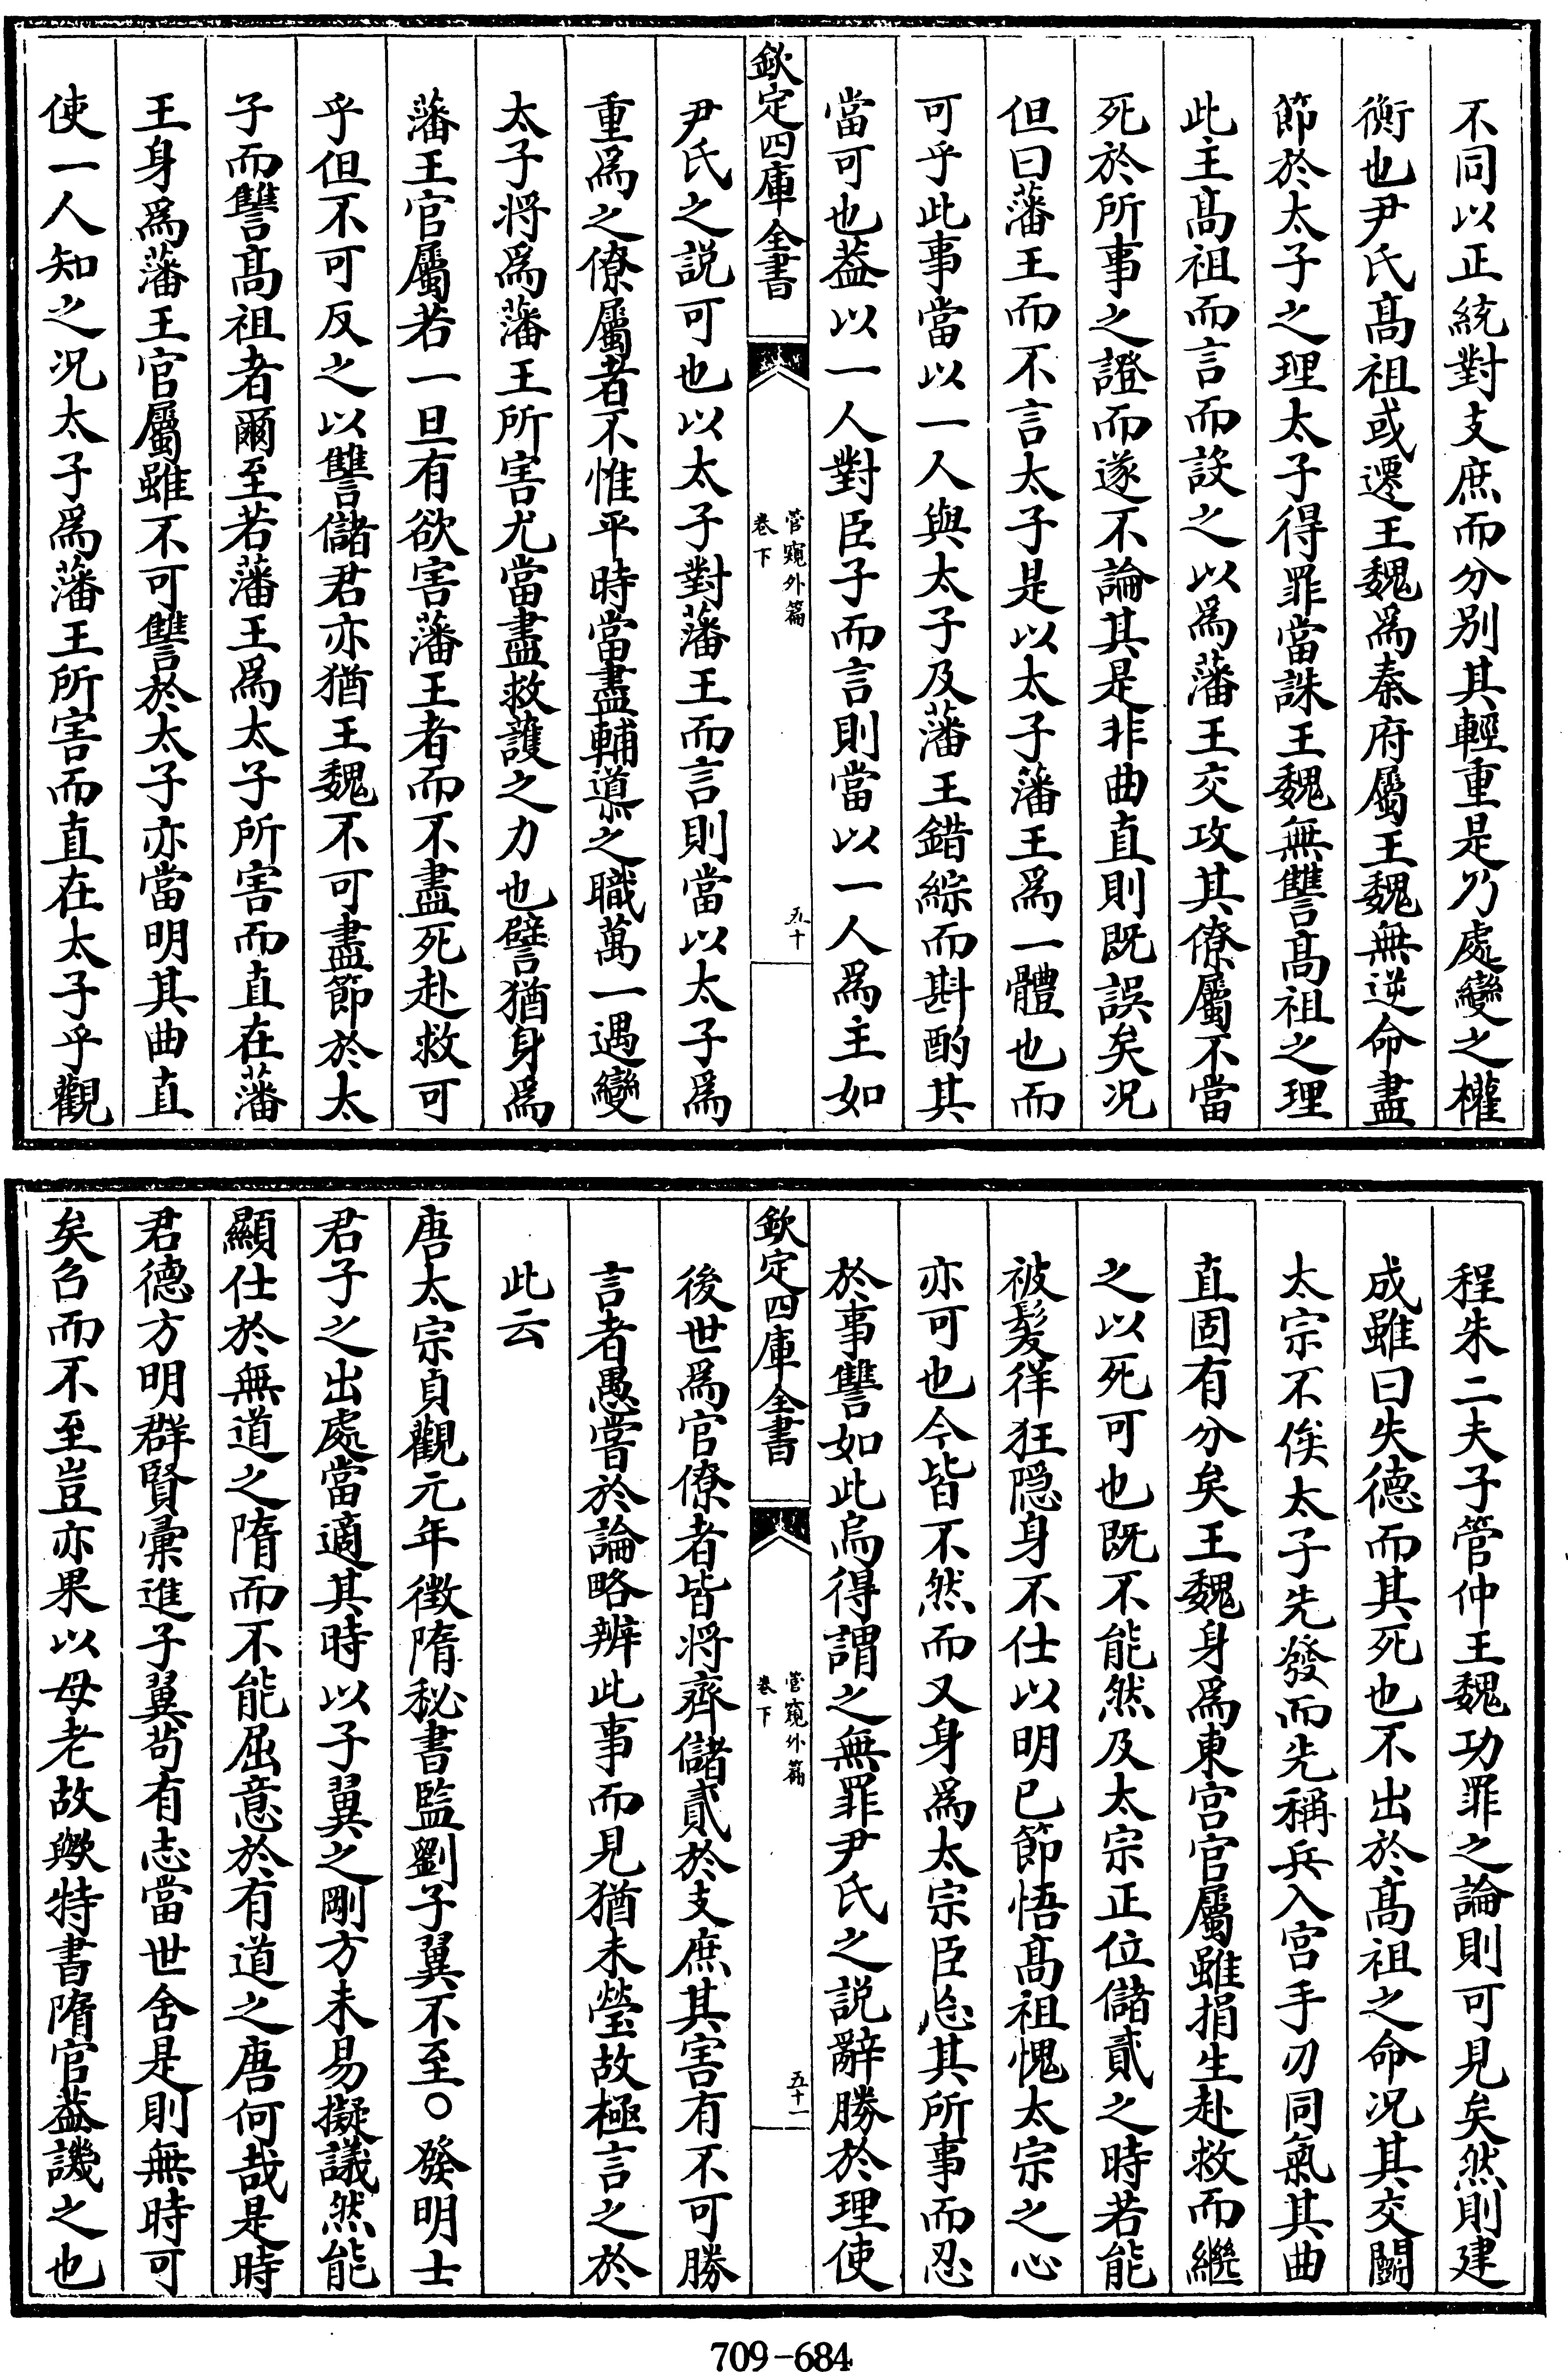 不同以正統對支庶而分别其輕重是乃處變之權
衡也尹氏髙祖或遷王魏爲秦府屬王魏無逆命盡
節於太子之理太子得罪當誅王魏無讐髙祖之理
此主髙祖而言而設之以爲藩王交攻其僚屬不當
死於所事之證而遂不論其是非曲直則既誤矣况
但曰藩王而不言太子是以太子藩王爲一體也而
可乎此事當以一人與太子及藩王錯綜而斟酌其
當可也葢以一人對臣子而言則當以一人爲主如
欽定四庫全書
管窺外篇
卷下
五十
尹氏之説可也以太子對藩王而言則當以太子爲
重爲之僚屬者不惟平時當盡輔導之職萬一遇變
太子將爲藩王所害尤當盡救護之力也譬猶身爲
藩王官屬若一旦有欲害藩王者而不盡死赴救可
乎但不可反之以讐儲君亦猶王魏不可盡節於太
子而讐髙祖者爾至若藩王爲太子所害而直在藩
王身爲藩王官屬雖不可讐於太子亦當明其曲直
使一人知之况太子爲藩王所害而直在太子乎觀
程朱二夫子管仲王魏功罪之論則可見矣然則建
成雖曰失德而其死也不出於髙祖之命况其交鬭
太宗不俟太子先發而先稱兵入宫手刃同氣其曲
直固有分矣王魏身爲東宫官屬雖捐生赴救而繼
之以死可也既不能然及太宗正位儲貳之時若能
被髪佯狂隠身不仕以明已節悟髙祖愧太宗之心
亦可也今皆不然而又身爲太宗臣忘其所事而忍
於事讐如此烏得謂之無罪尹氏之説辭勝於理使
欽定四庫全書
管窺外篇
卷下
五十一
後世爲官僚者皆將齊儲貳於支庶其害有不可勝
言者愚嘗於論略辨此事而見猶未瑩故極言之於
此云
唐太宗貞觀元年徴隋秘書監劉子翼不至○發明士
君子之出處當適其時以子翼之剛方未易擬議然能
顯仕於無道之隋而不能屈意於有道之唐何哉是時
君德方明群賢彚進子翼茍有志當世舍是則無時可
矣召而不至豈亦果以母老故歟特書隋官葢譏之也
709-684